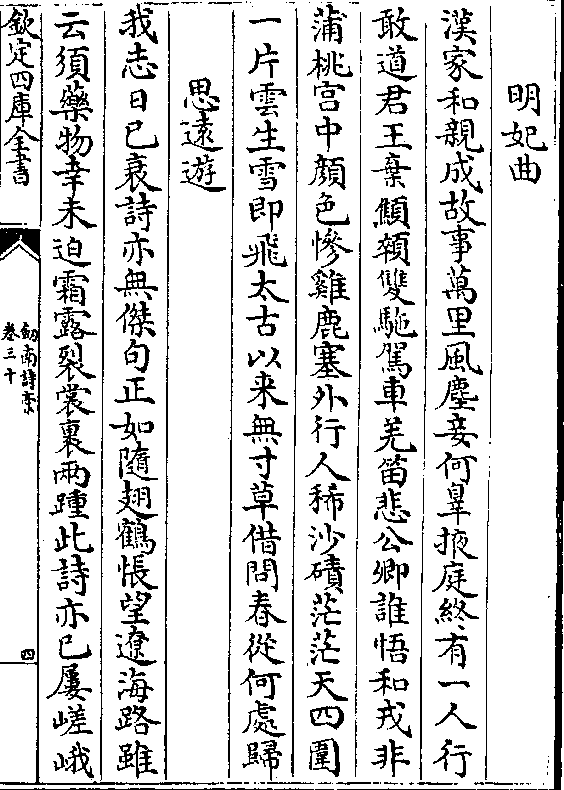 明妃曲
漢家和親成故事萬里風塵妾何辠掖庭終有一人行
敢道君王棄顦顇雙駞駕車羌笛悲公卿誰悟和戎非
蒲桃宫中顔色慘雞鹿塞外行人稀沙磧茫茫天四圍
一片雲生雪即飛太古以来無寸草借問春從何處歸
思遠遊
我志日已衰詩亦無傑句正如隨翅鶴悵望遼海路雖
云須藥物幸未迫霜露裂裳裹兩踵此詩亦已屢嵯峨
欽定四庫全書
劒南詩槀
卷三十
四